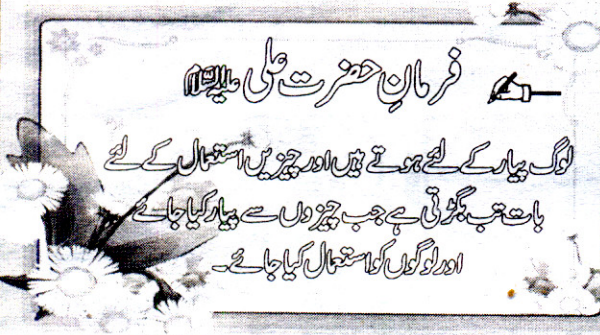 فرمانِ حضرت علی علیہ السلام
لوگ پیار کے لئے ہوتے ہیں اور چیزیں استعمال کے لئے
بات تب بگڑتی ہے جب چیزوں سے پیار کیا جائے
اور لوگوں کو استعمال کیا جائے۔